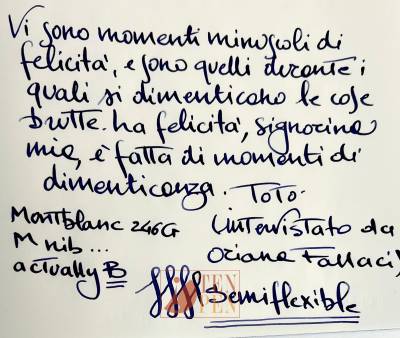 Vi sono momenti minuscoli di
felicità, e sono quelli durante i
quali si dimenticano le cose
brutte. La felicità, signorina
mia, è fatta di momenti di
dimenticanza. Totò.
Montblanc 246G
M nib...
actually B
(intervistato da
Oriana Fallaci)
Semiflexible
TEN
PEN